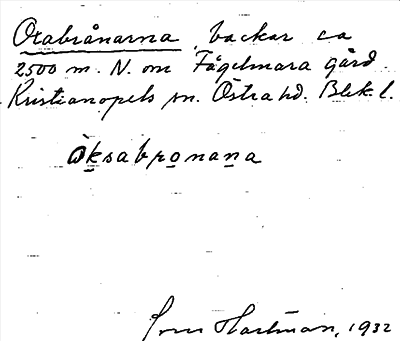 Oxabrånarna backar ca
2500 m. N. om Fågelmara gård.
Kristianopels sn. Östra hd. Blek. l.
òksabronana
Hartman, 1932